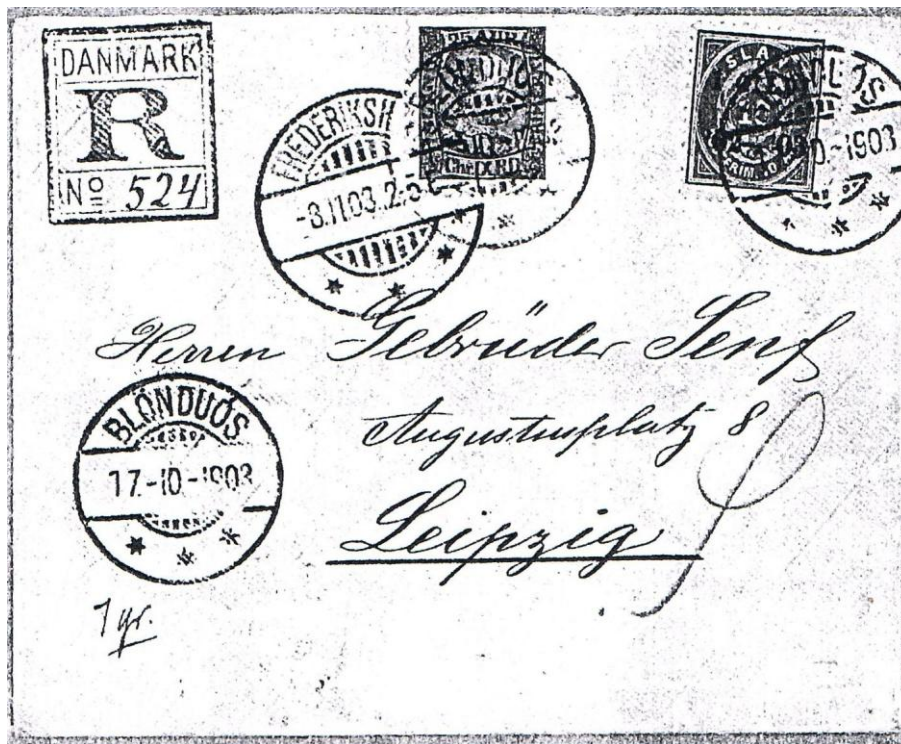 DANMARK
R
Nº 524
FREDERIKSH
-3.11.03. 2-3
25 AUR
BLÖNDUÓS
-10-1903
Herren Gebrüder Senf
Augustusplatz 8
Leipzig
BLÖNDUÓS
17.-10.-1903
1 gr.